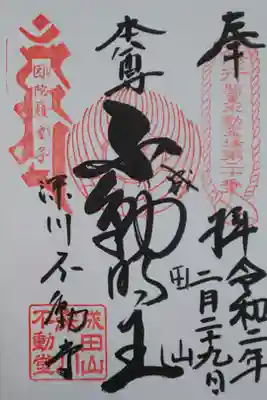 奉拝
関東三十六不動霊場第二十番
令和二年
二月二十九日
本尊
不動明王
成田山
因陀羅童子
深川不動堂
成田山
不動堂